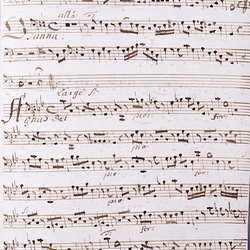 allo
Osanna.
Largo
Agnus Dei pia: for:
pia: for:
pia: for:
pia:
for: